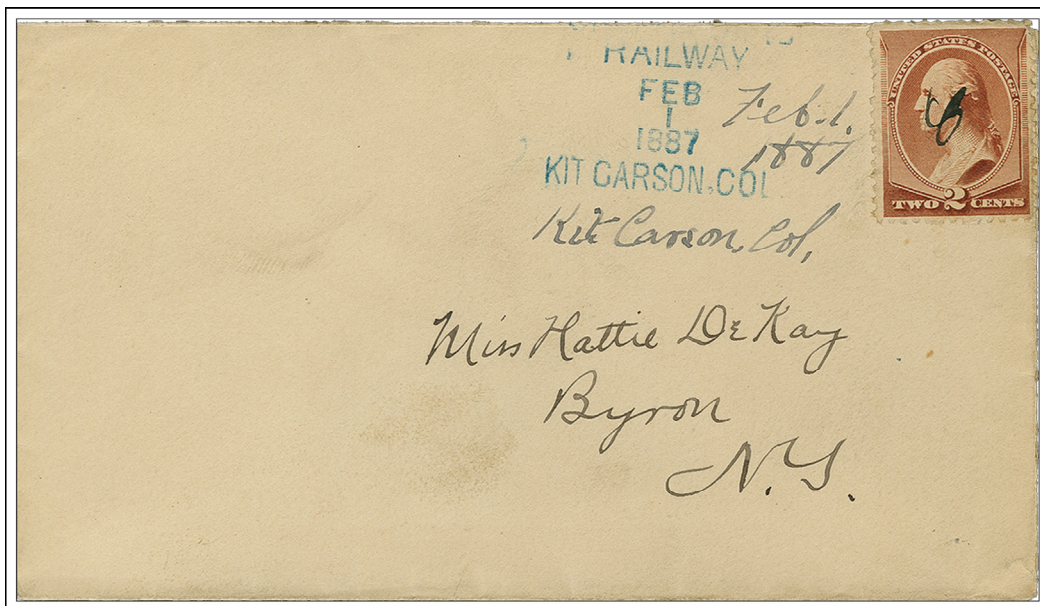 RAILWAY
FEB
1
1887
KIT CARSON, COL
Feb. 1,
1887
Kit Carson, Col,
UNITED STATES POSTAGE
TWO 2 CENTS
Miss Hattie De Kay
Byron
N.Y.